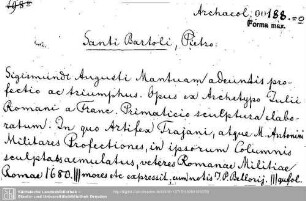 Archaeol. 188.
Forma max.
Santi Bartoli, Pietro.
Sigismundi Augusti Mantuam adeuntis pro-
fectio ac triumphus. Opus ex Archetypo Julii
Romani a Franc. Primaticio sculptura elabo-
ratum. In quo Artifex Trajani, atque M. Antonini
Militares Profectiones, in ipsorum Columnis
sculptas aemulatus, veteres Romanae Militiae
mores etc expressit, cum notis J. P. Bellorij.
Romae 1680. qufol.